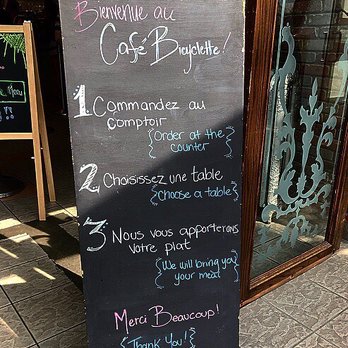 Bienvenue au
Café Bicyclette!
1. Commandez au
comptoir
{Order at the
counter}
2. Choisissez une table
{Choose a table}
3. Nous vous apporterons
votre plat
{We will bring you
your meal}
Merci Beaucoup!
{Thank You!}